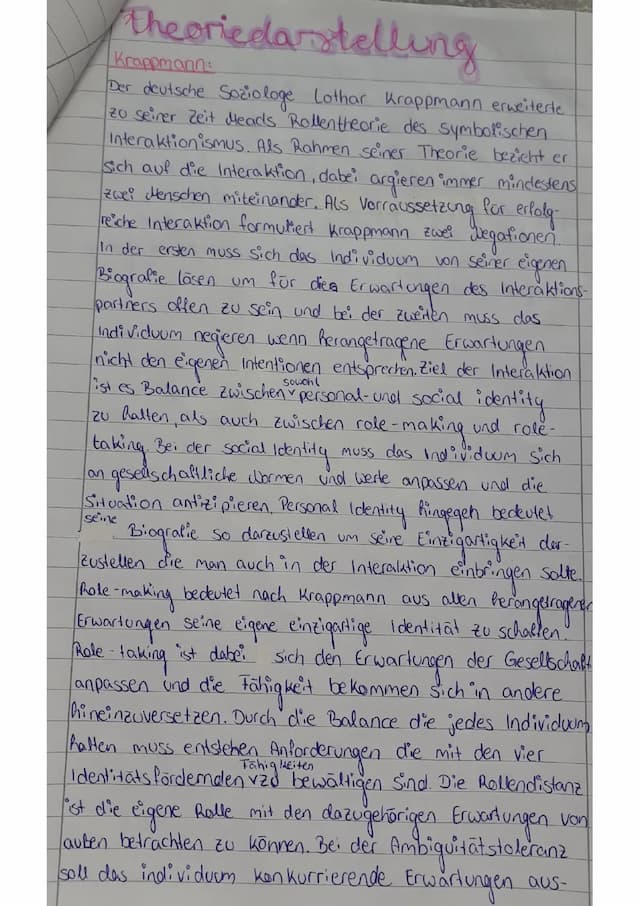 Theoriedarstellung
Krappmann:
Der deutsche Soziologe Lothar Krappmann erweiterte
zu seiner Zeit Meads Rollentheorie des symbolischen
Interaktionismus. Als Rahmen seiner Theorie bezieht er
sich auf die Interaktion, dabei argieren immer mindestens
zwei Menschen miteinander. Als Vorraussetzung für erfolg-
reiche Interaktion formuliert Krappmann zwei Negationen.
In der ersten muss sich das Individuum von seiner eigenen
Biografie lösen um für die Erwartungen des Interaktions-
partners offen zu sein und bei der zweiten muss das
Individuum negieren wenn herangetragene Erwartungen
nicht den eigenen Intentionen entsprechen. Ziel der Interaktion
ist es Balance zwischen sowohl personal- und social identity
zu halten, als auch zwischen role-making und role-
taking. Bei der social Identity muss das Individuum sich
an gesellschaftliche Normen und Werte anpassen und die
Situation antizipieren. Personal Identity hingegeh bedeutet
seine Biografie so darzustellen um seine Einzigartigkeit dar-
zustellen die man auch in der Interaktion einbringen sollte.
Role-making bedeutet nach Krappmann aus allen herangetragenen
Erwartungen seine eigene einzigartige Identität zu schaffen.
Role-taking ist dabei sich den Erwartungen der Gesellschaft
anpassen und die Fähigkeit bekommen sich in andere
hineinzuversetzen. Durch die Balance die jedes Individuum
halten muss entstehen Anforderungen die mit den vier
Identitätsfördernden Fähigkeiten zu bewältigen sind. Die Rollendistanz
ist die eigene Rolle mit den dazugehörigen Erwartungen von
außen betrachten zu können. Bei der Ambiguitätstoleranz
soll das individuum konkurrierende Erwartungen aus-